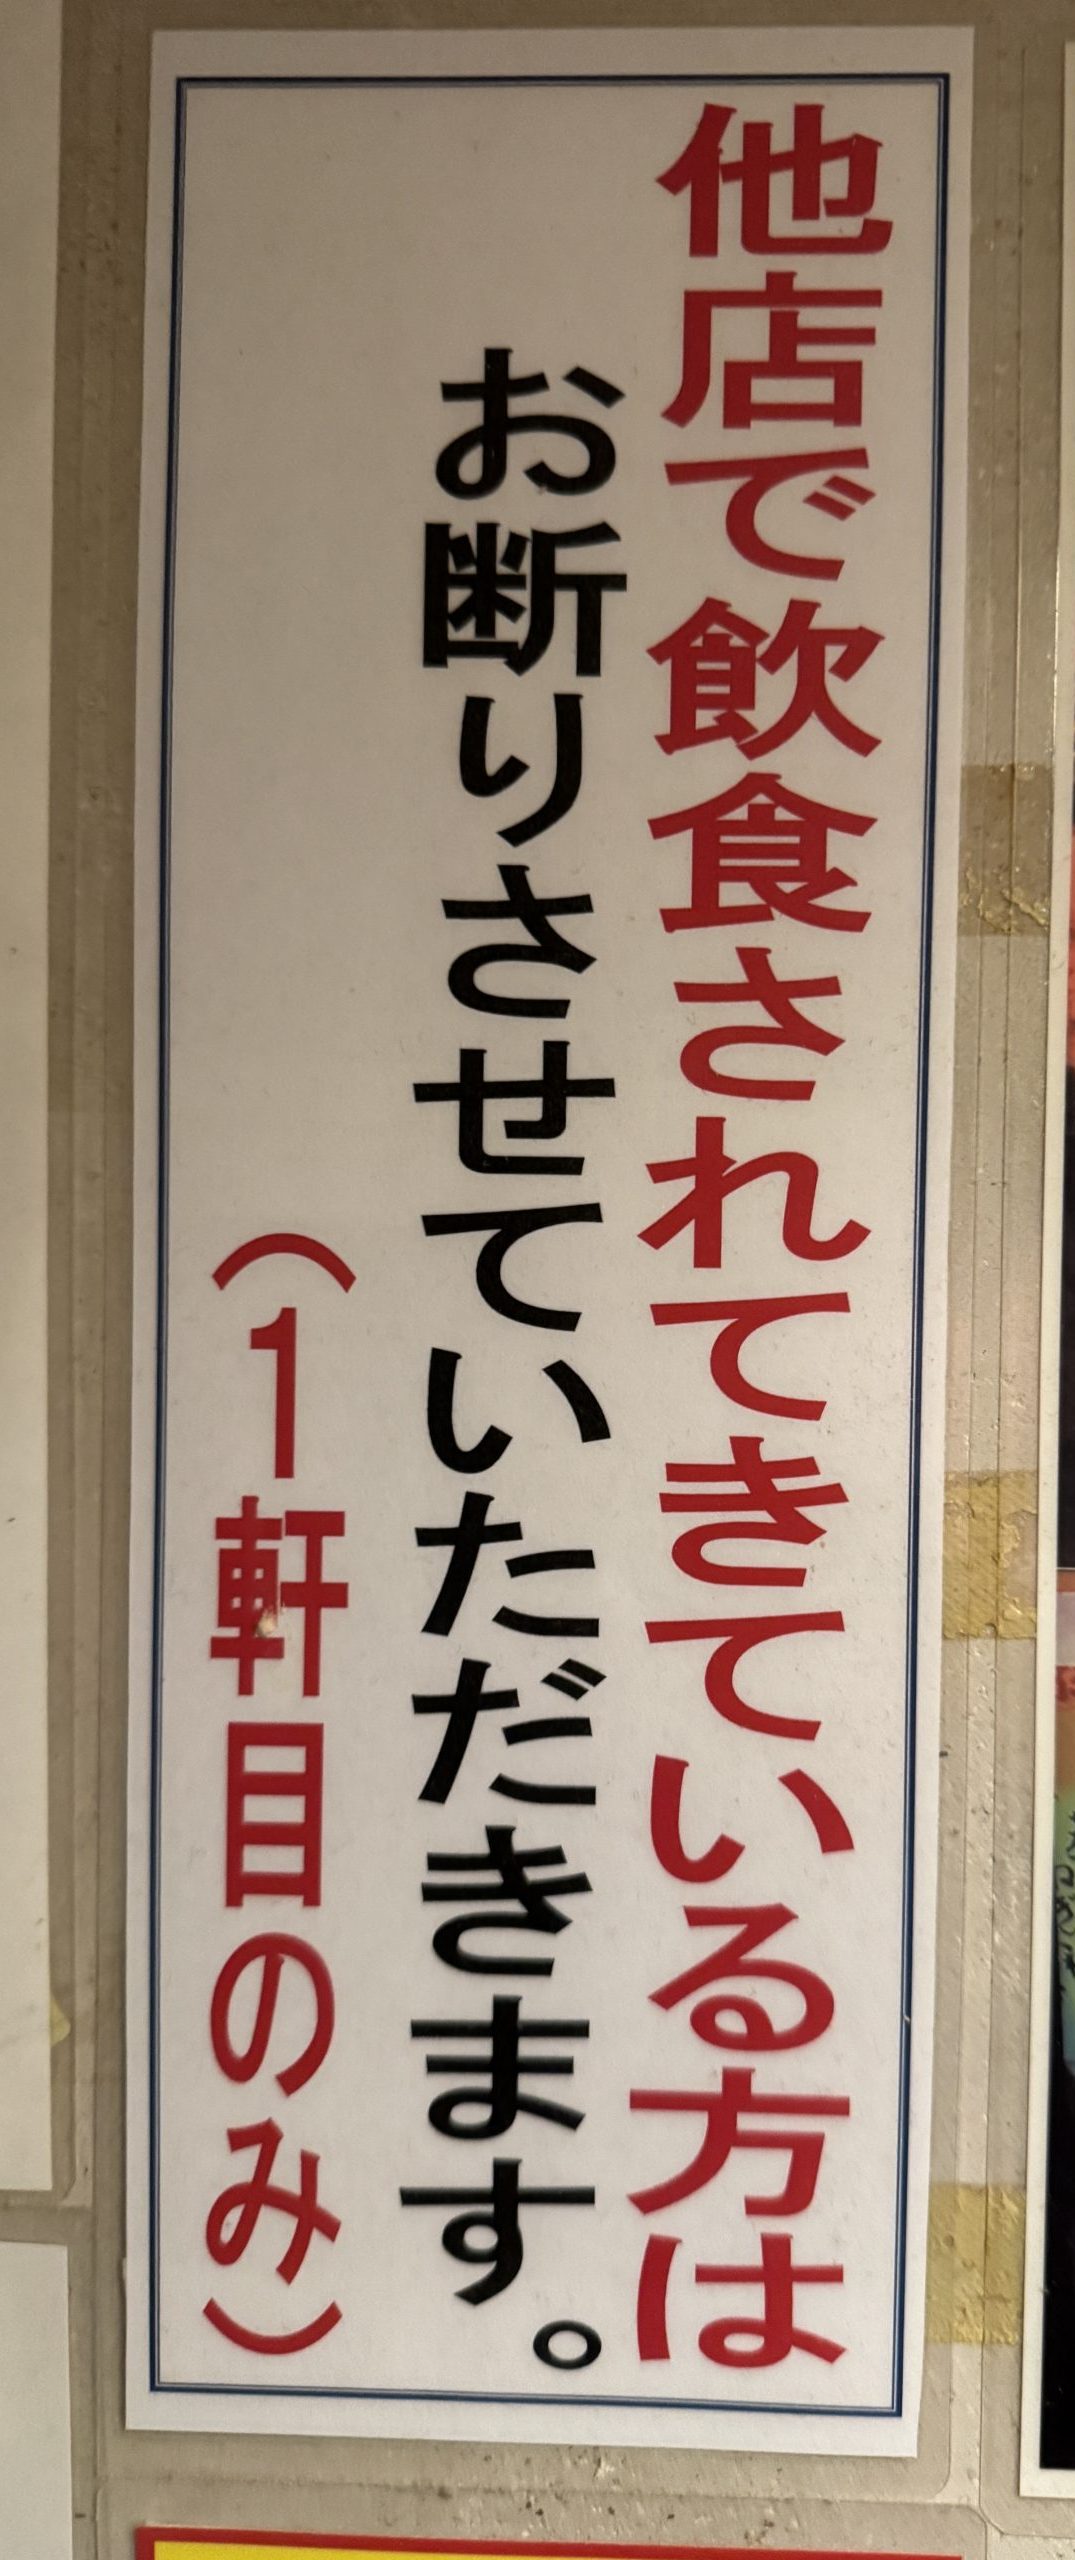 他店で飲食されてきている方は
お断りさせていただきます。
（1軒目のみ）